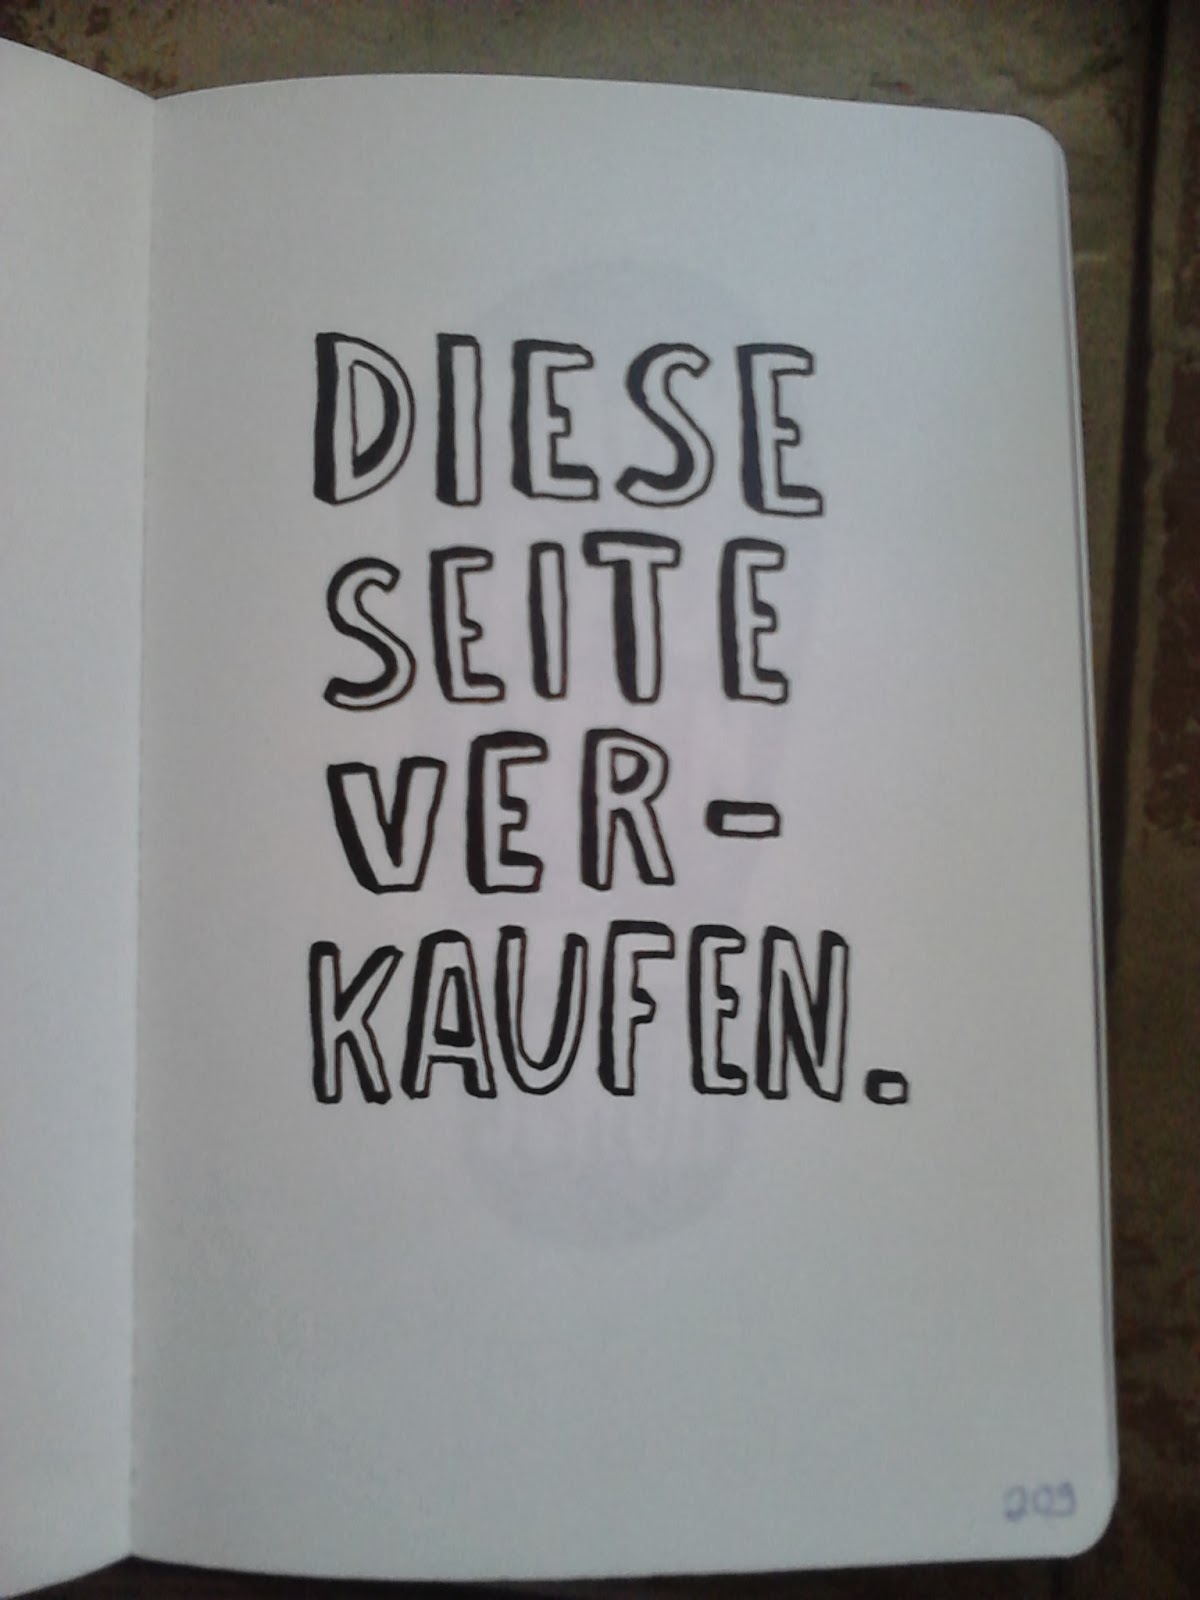 DIESE
SEITE
VER-
KAUFEN.
209